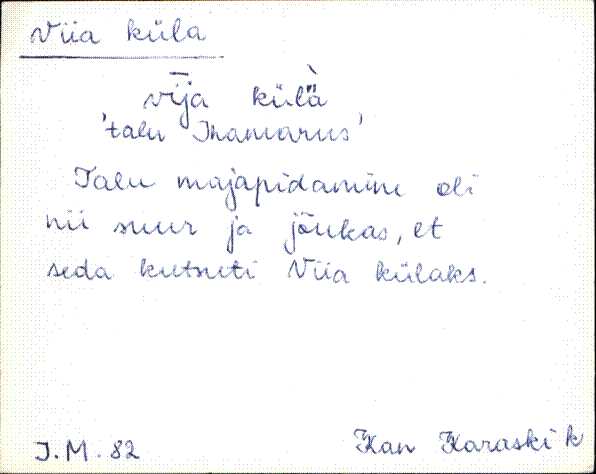 Viia küla
vīja külä̀
'talu Ihamarus'
Talu majapidamine oli
nii suur ja jõukas, et
seda kutsuti Viia külaks.
J.M. 82 Kan Karaski k